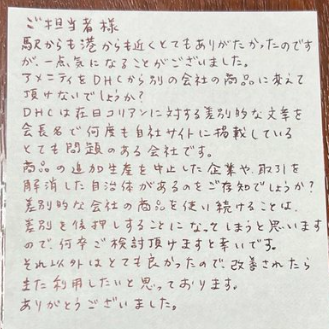 ご担当者様
駅からも港からも近くとてもありがたかったのです
が、一点気になることがございました。
アメニティをDHCから別の会社の商品に変えて
頂けないでしょうか?
DHCは在日コリアンに対する差別的な文章を
会長名で何度も自社サイトに掲載している
とても問題のある会社です。
商品の追加生産を中止した企業や、取引を
解消した自治体があるのをご存知でしょうか?
差別的な会社の商品を使い続けることは、
差別を後押しすることになってしまうと思います
ので、何卒ご検討頂けますと幸いです。
それ以外はとても良かったので、改善されたら
また利用したいと思っております。
ありがとうございました。